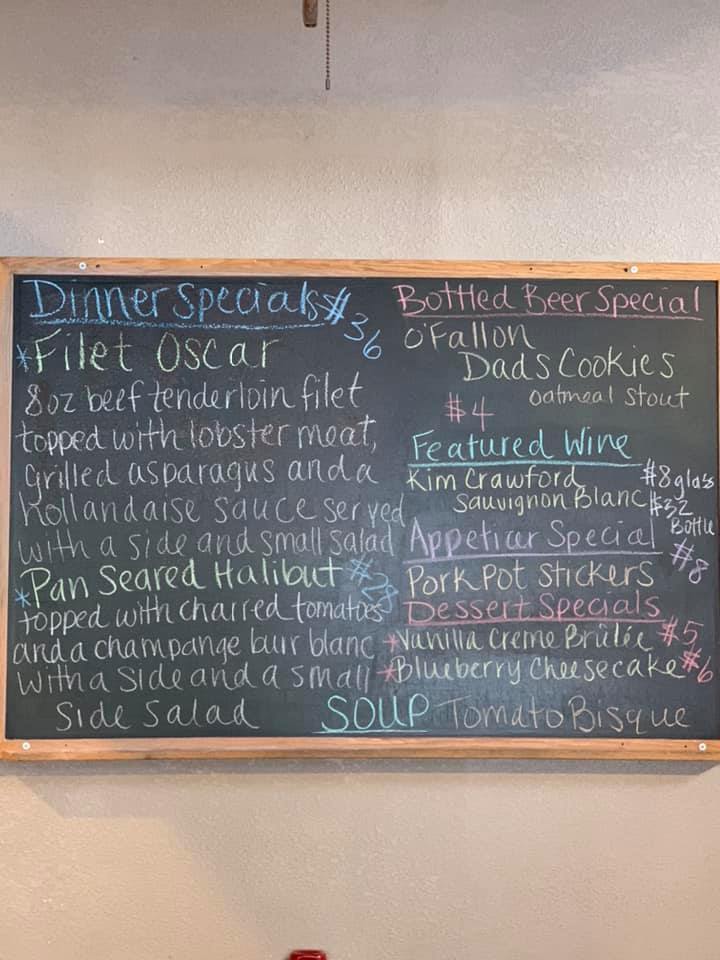 Dinner Specials $36
*Filet Oscar
8oz beef tenderloin filet
topped with lobster meat,
grilled asparagus and a
hollandaise sauce served
with a side and small salad
*Pan Seared Halibut $28
topped with charred tomatoes
and a champange burr blanc
with a side and a small
Side Salad
Bottled Beer Special
O'Fallon
Dads Cookies
oatmeal stout
$4
Featured Wine
Kim Crawford $8 glass
Sauvignon Blanc $32
Bottle
Appetizar Special
$8
Pork Pot Stickers
Dessert Specials
*Vanilla Creme Brûlée $5
*Blueberry Cheesecake $6
SOUP Tomato Bisque